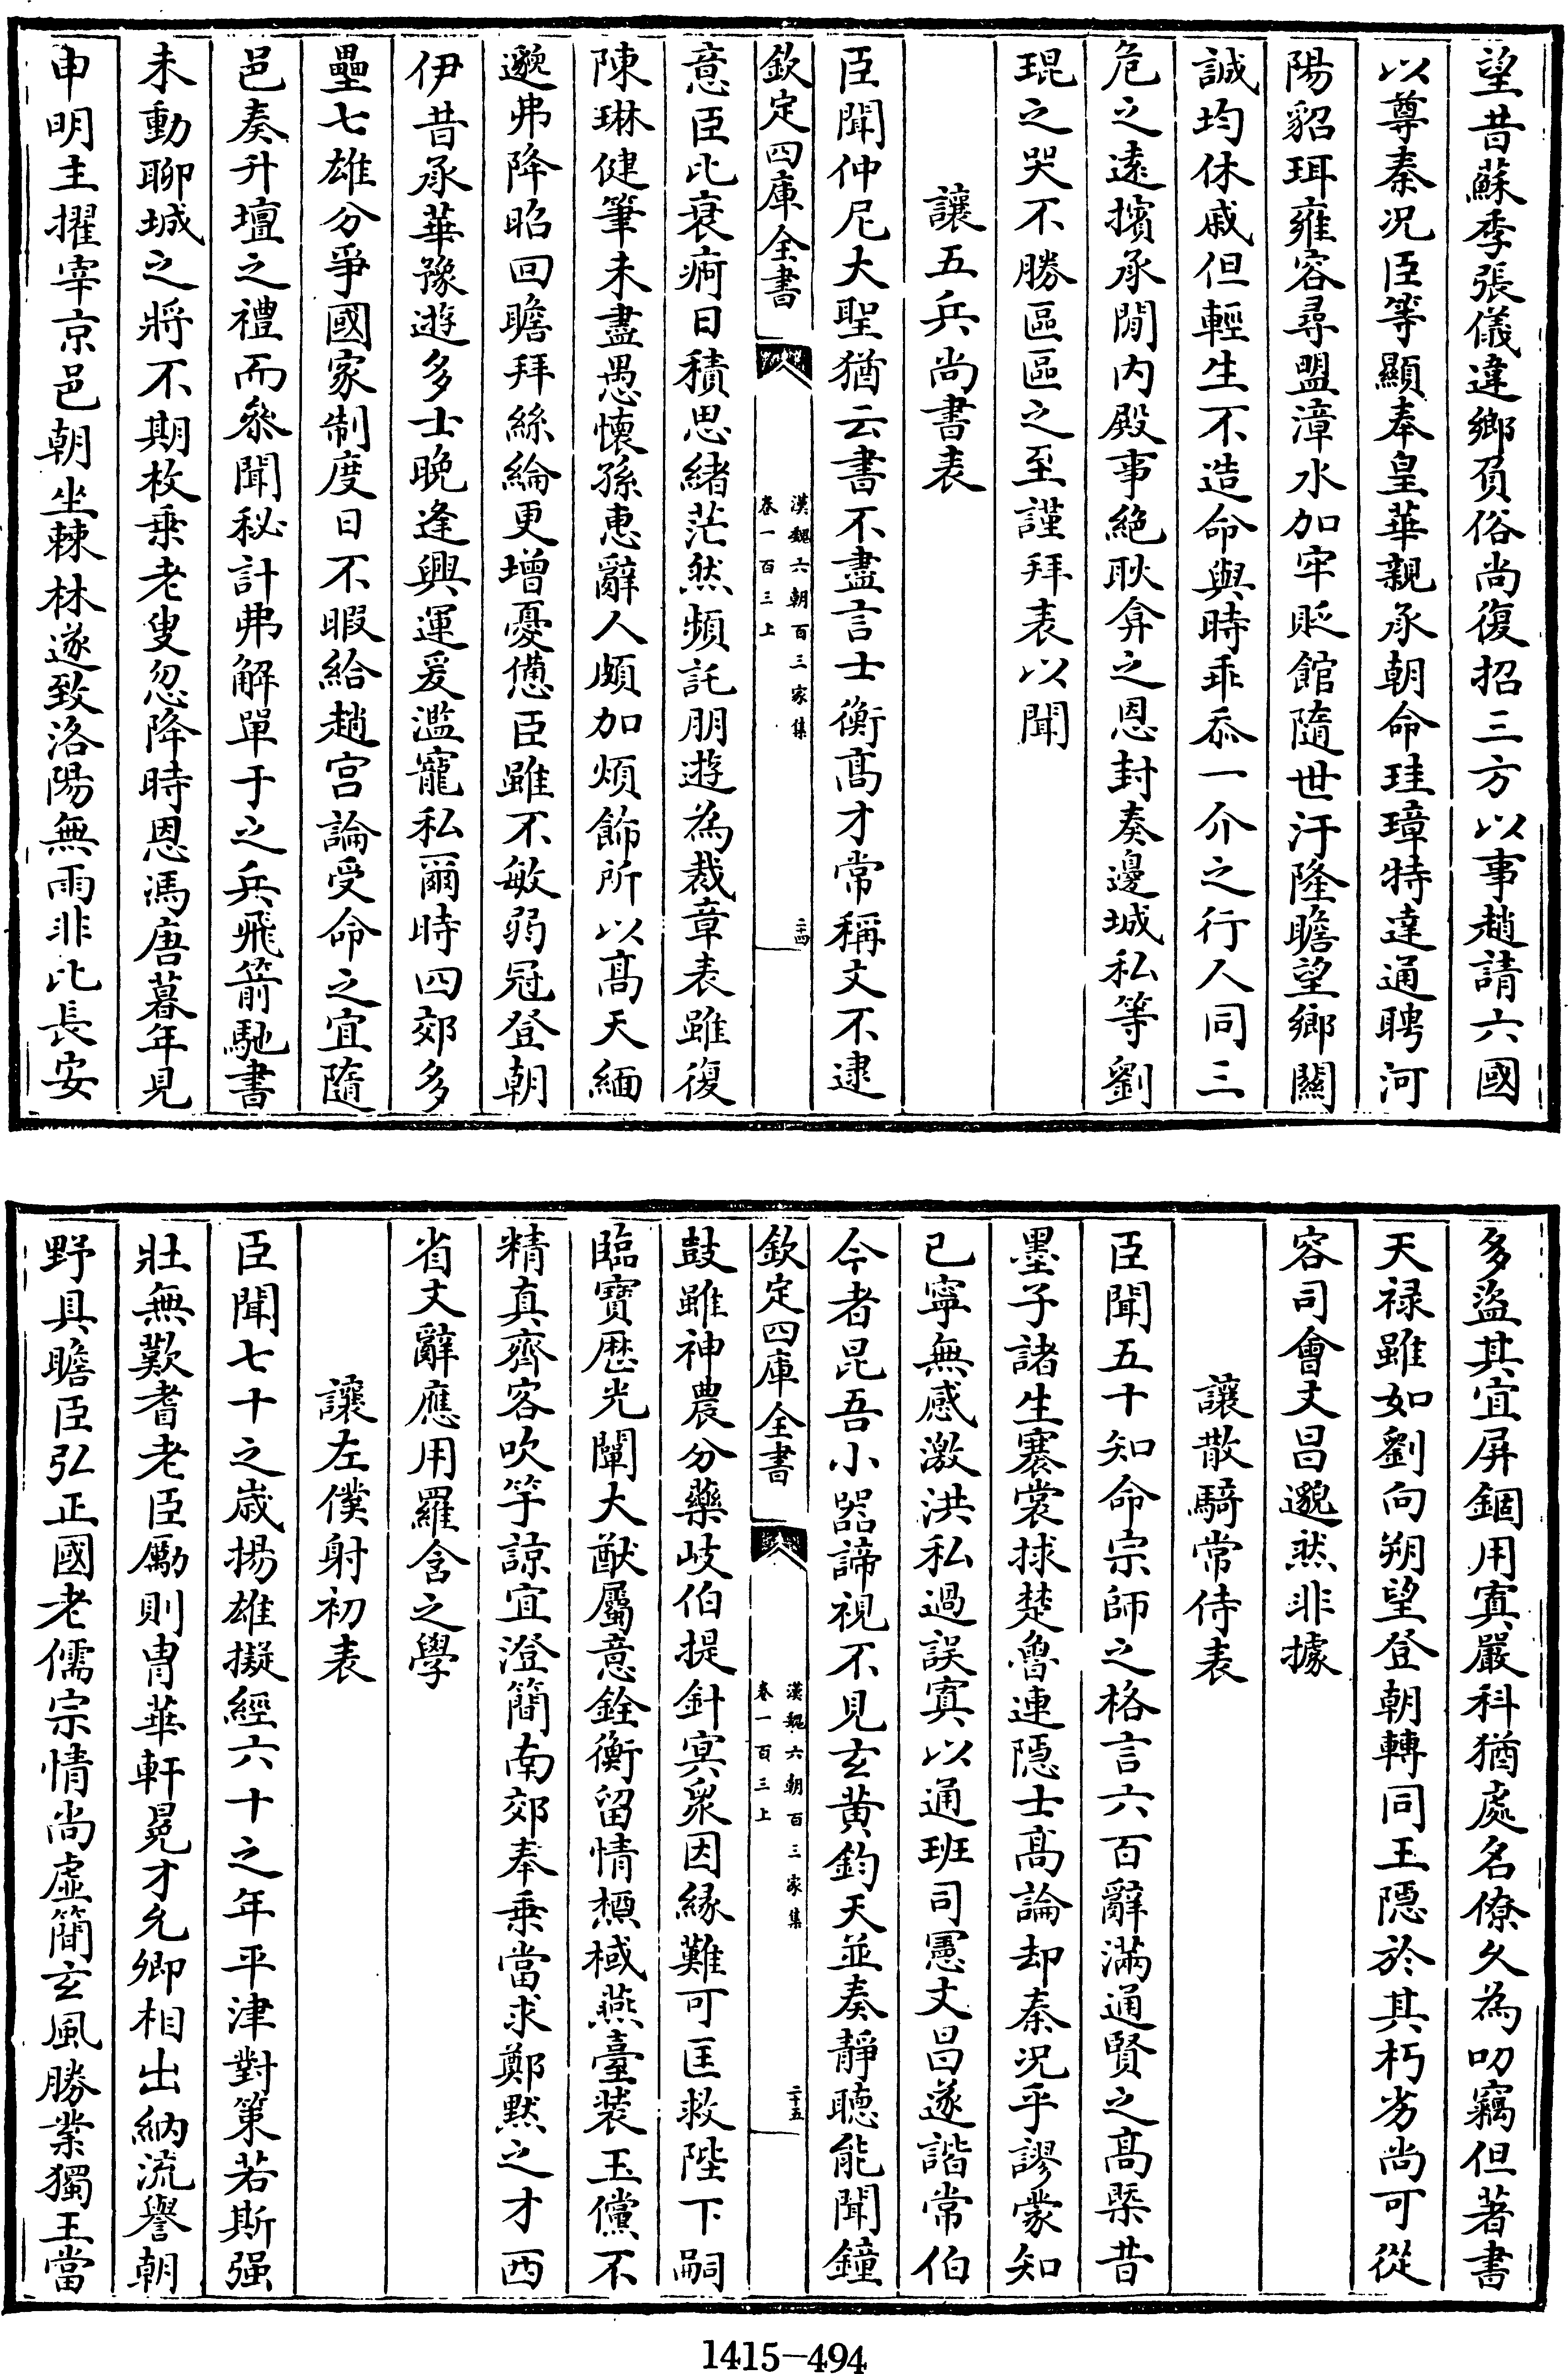 望昔蘇季張儀違鄉負俗尚復招三方以事趙請六國
以尊秦况臣等顯奉皇華親承朝命珪璋特達通聘河
陽貂珥雍容尋盟漳水加牢貶館隨世汙隆瞻望鄉關
誠均休戚但輕生不造命與時乖忝一介之行人同三
危之逺擯承閒内殿事絶耿弇之恩封奏邊城私等劉
琨之哭不勝區區之至謹拜表以聞
讓五兵尚書表
臣聞仲尼大聖猶云書不盡言士衡髙才常稱文不逮
欽定四庫全書
漢魏六朝百三家集
卷一百三上
二十四
意臣比衰痾日積思緒茫然頻託朋遊為裁章表雖復
陳琳健筆未盡愚懷孫恵辭人頗加煩飾所以髙天緬
邈弗降昭回瞻拜絲綸更增憂憊臣雖不敏弱冠登朝
伊昔承華豫遊多士晩逢興運爰濫寵私爾時四郊多
壘七雄分爭國家制度日不暇給趙宫論受命之宜隨
邑奏升壇之禮而叅聞秘計弗解單于之兵飛箭馳書
未動聊城之將不期枚乗老叟忽降時恩馮唐暮年見
申明主擢宰京邑朝坐棘林遂致洛陽無雨非比長安
多盗其宜屏錮用寘嚴科猶處名僚乆為叨竊但著書
天禄雖如劉向朔望登朝轉同王隠於其朽劣尚可從
容司會文昌邈然非據
讓散騎常侍表
臣聞五十知命宗師之格言六百辭滿通賢之髙槩昔
墨子諸生褰裳捄楚魯連隠士髙論却秦况乎謬蒙知
已寧無感激洪私過誤寘以通班司憲文昌遂諧常伯
今者昆吾小器諦視不見玄黄鈞天並奏靜聴能聞鐘
欽定四庫全書
漢魏六朝百三家集
卷一百三上
二十五
鼓雖神農分藥岐伯提針冥衆因縁難可匡救陛下嗣
臨寶厯光闡大猷屬意銓衡留情樻棫燕臺裝玉儻不
精真齊客吹竽諒宜澄簡南郊奉乗當求鄭黙之才西
省文辭應用羅含之學
讓左僕射初表
臣聞七十之嵗揚雄擬經六十之年平津對策若斯强
壯無歎耆老臣勵則胄華軒冕才允卿相出納流譽朝
野具瞻臣弘正國老儒宗情尚虛簡玄風勝業獨王當
1415—494